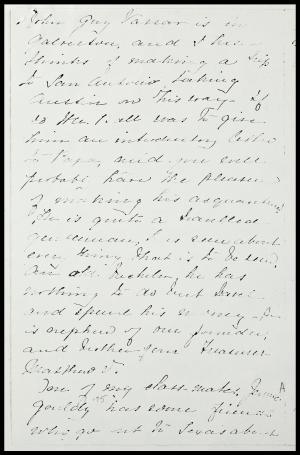 John Guy Vassar is in
Galveston, and I hear
thinks of making a trip
to San Antonio taking
Austin on his way. If
so Mr. was to give
him an introductory letter
to Papa, and you will
probably have the pleasure
of making his acquaintance
He is quite a travelled
gentleman, I is seen about
every thing that is to be seen.
An old bachelor, he has
nothing to do but travel
and spend his money. He
is nephew of our founder,
and brother of our treasurer
Matthew V.
One of my class-mates, Jennie
has some friends
who go out to Texas about